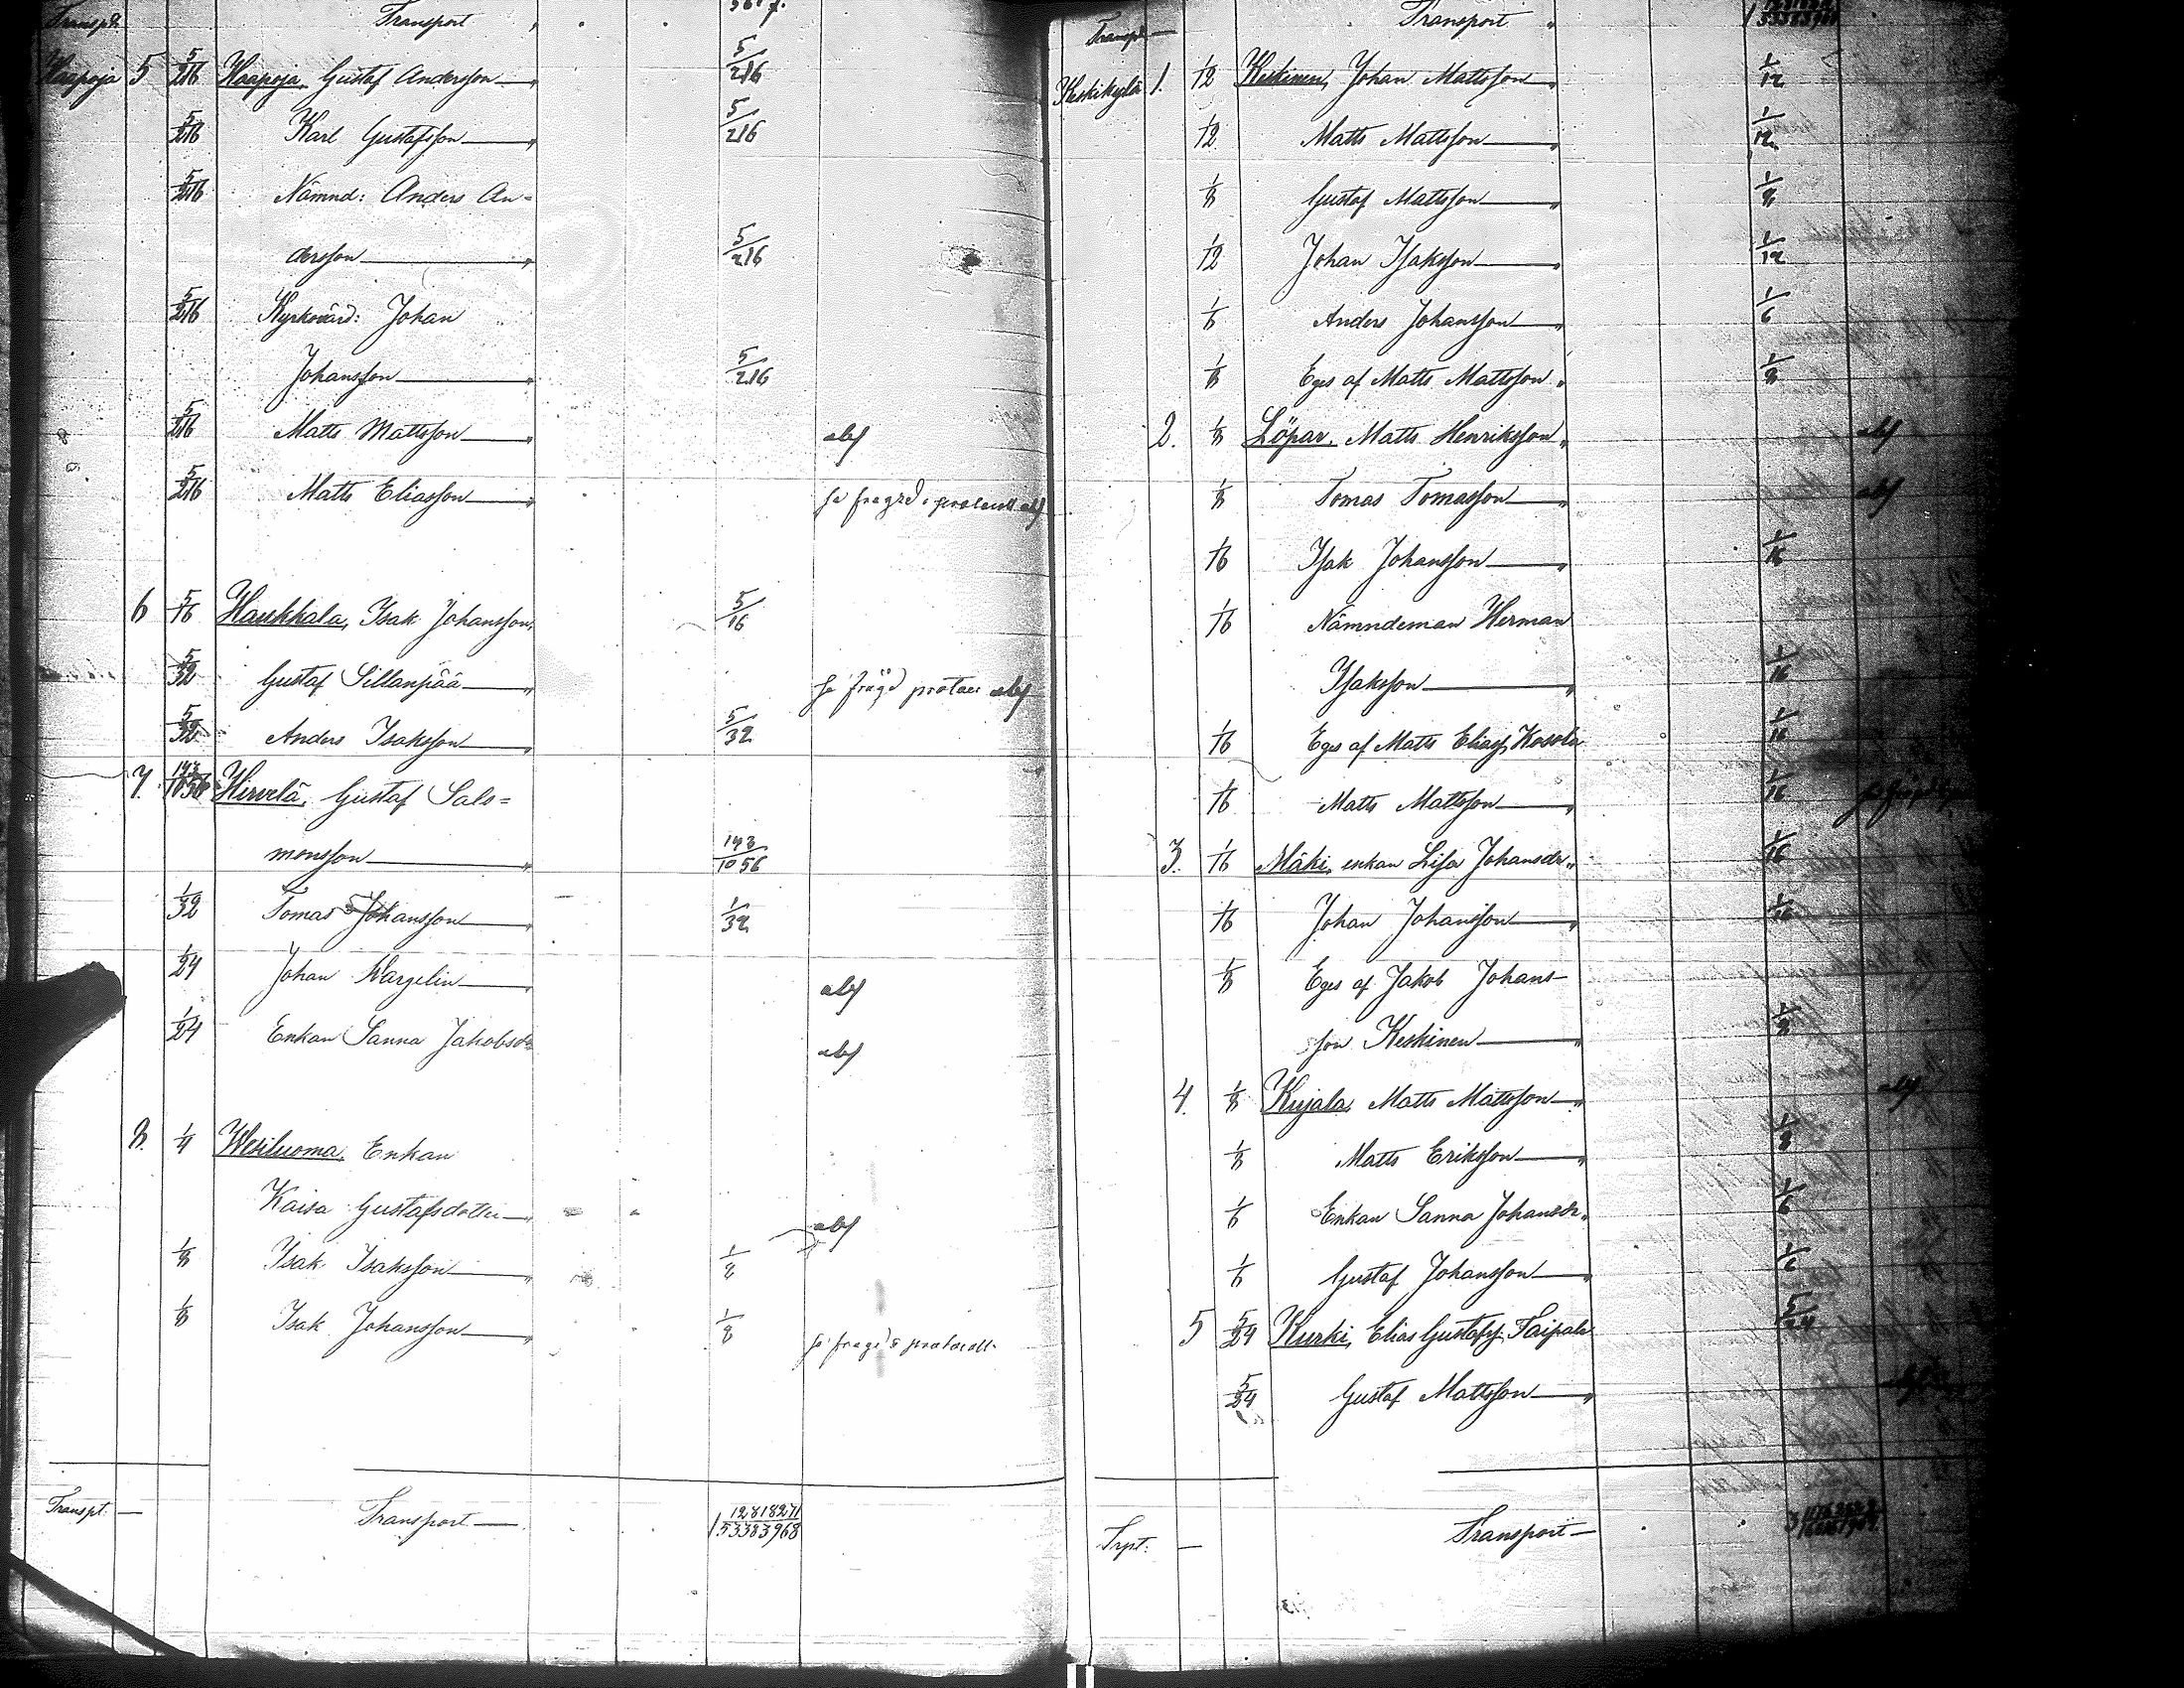 Transpt. Transport
Haapoja 5 5/216 Haapoja, Gustaf Andersson — " 5/216
5/216 Karl Gustafsson — " 5/216
5/216 Nämnd: Anders An=
dersson — " 5/216
5/216 Kyrkovärd: Johan
Johansson — " 5/216
5/216 Matts Mattsson — " abs
5/216 Matts Eliasson — "
6 5/16 Haukkala, Isak Johansson " 5/16
5/32 Gustaf Sillanpää — "
5/32 Anders Isaksson — " 5/32
7. 143/1056 Hirvelä, Gustaf Salo=
monsson — " 143/1056
1/32 Tomas Johansson — " 1/32
1/24 Johan Wargelin — " abs
1/24 Enkan Sanna Jakobsdr abs
8. 1/4 Wesiluoma, Enkan
Kaisa Gustafsdotter — " abs
1/8 Isak Isaksson — " 1/8
1/8 Isak Johansson — " 1/8
Transpt. — Transport — 1 12818271/53383968
Transpt — Transport "
Keskikylä 1. 1/12 Keskinen, Johan Mattsson " 1/12
1/12 Matts Mattsson — " 1/12
1/8 Gustaf Mattsson — " 1/8
1/12 Johan Isaksson — " 1/12
1/6 Anders Johansson — " 1/6
1/8 Eges af Matts Mattsson " 1/8
2. 1/8 Löpar, Matts Henriksson " abs
1/8 Tomas Tomasson — " abs
1/16 Isak Johansson — " 1/16
1/16 Nämndeman Herman
Isaksson — " 1/16
1/16 Eges af Matts Eliass. Kosola 1/16
1/16 Matts Mattsson — " 1/16
3. 1/16 Mäki, enkan Lisa Johansdr " 1/16
1/16 Johan Johansson — " 1/16
1/8 Eges af Jakob Johans-
son Keskinen — " 1/8
4. 1/8 Kujala, Matts Mattsson — " abs
1/8 Matts Eriksson — " 1/8
1/6 Enkan Sanna Johansdr " 1/6
1/6 Gustaf Johansson — " 1/6
5 5/24 Kurki, Elias Gustafss. Taipale 5/24
5/24 Gustaf Mattsson — "
Trpt. — Transport —